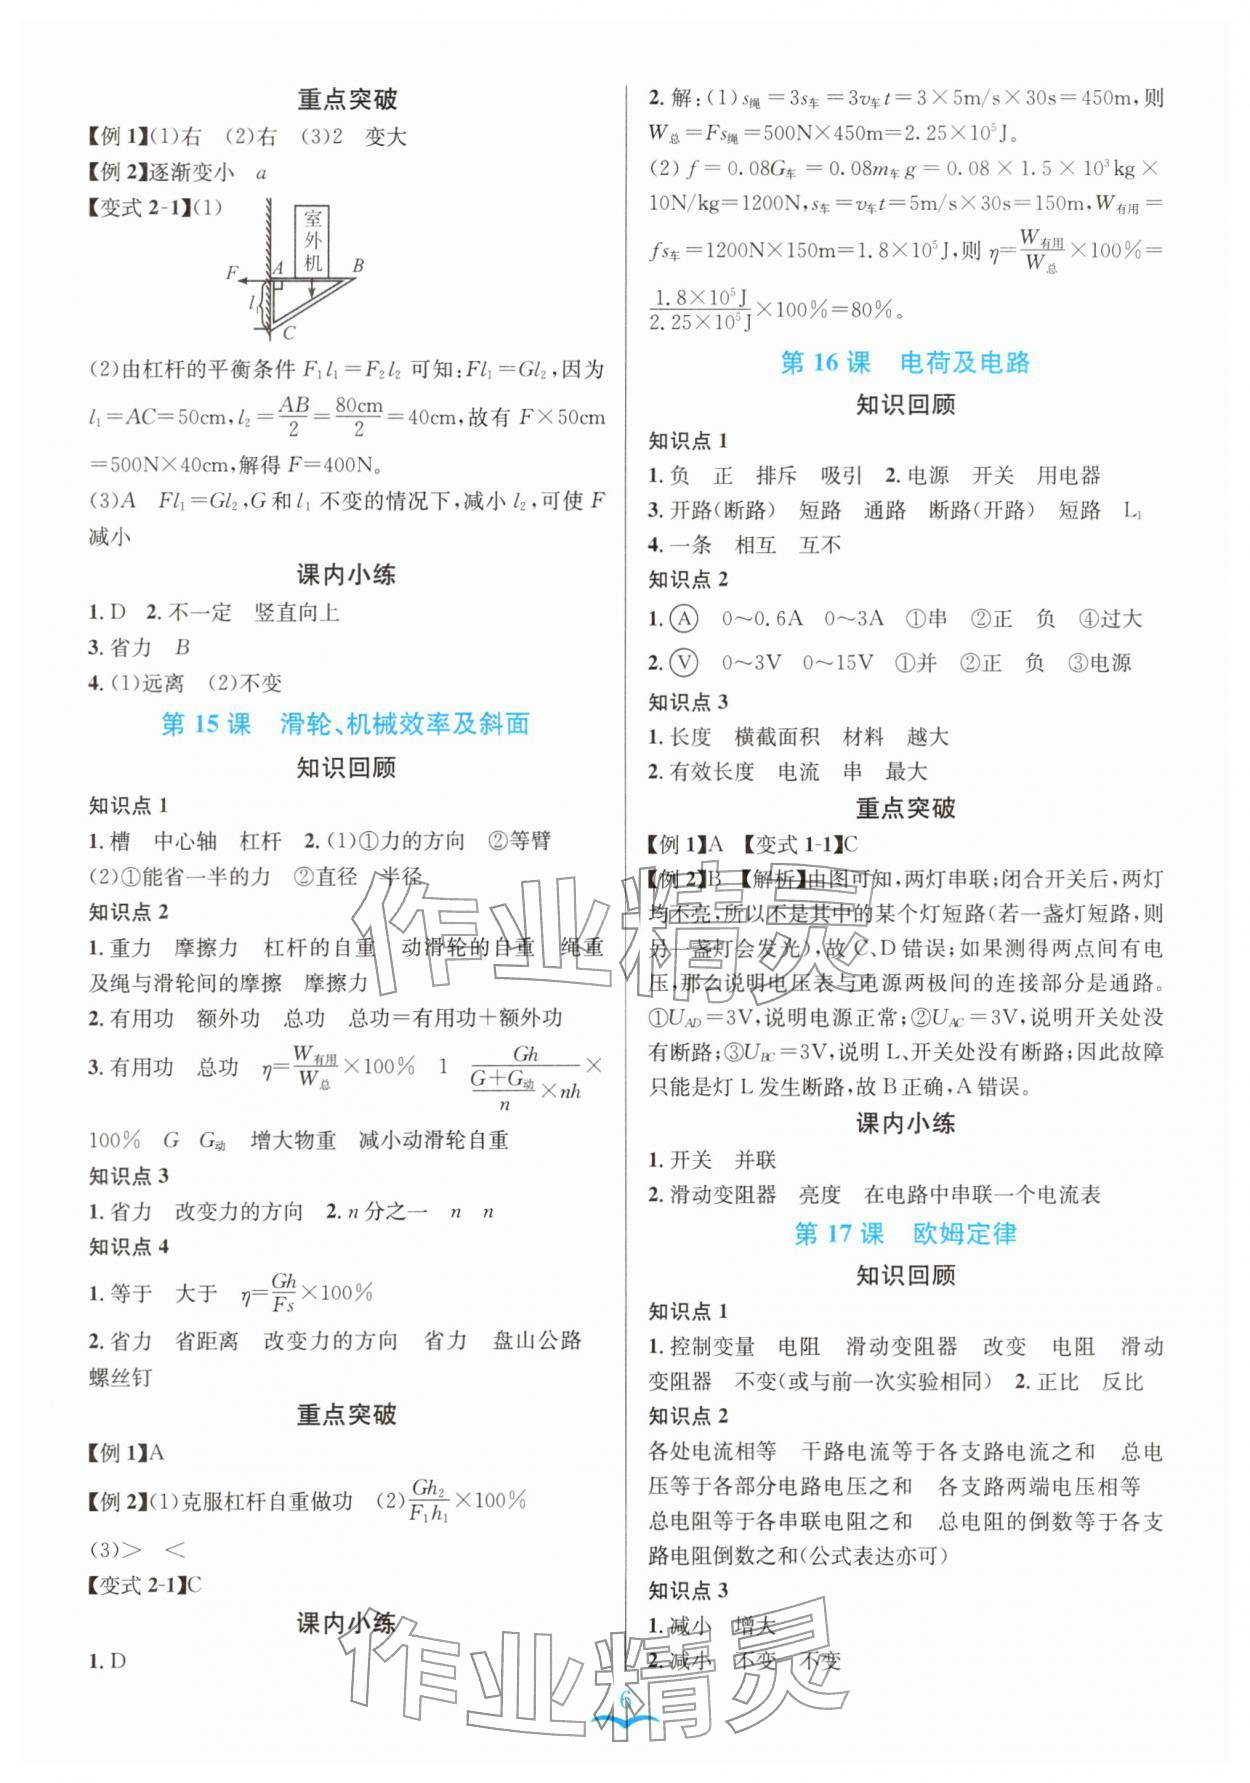 重点突破
【例1】(1)右 (2)右 (3)2 变大
【例2】逐渐变小 a
【变式2-1】(1)
室外机
F A B
l₁
C
(2)由杠杆的平衡条件 F₁l₁=F₂l₂ 可知:Fl₁=Gl₂,因为
l₁=AC=50cm,l₂=AB/2=80cm/2=40cm,故有 F×50cm
=500N×40cm,解得 F=400N。
(3)A Fl₁=Gl₂,G和l₁不变的情况下,减小l₂,可使F
减小
课内小练
1.D 2.不一定 竖直向上
3.省力 B
4.(1)远离 (2)不变
第15课 滑轮、机械效率及斜面
知识回顾
知识点1
1.槽 中心轴 杠杆 2.(1)①力的方向 ②等臂
(2)①能省一半的力 ②直径 半径
知识点2
1.重力 摩擦力 杠杆的自重 动滑轮的自重 绳重
及绳与滑轮间的摩擦 摩擦力
2.有用功 额外功 总功 总功=有用功+额外功
3.有用功 总功 η=W有用/W总×100% 1 Gh/((G+G动)/n×nh)×
100% G G动 增大物重 减小动滑轮自重
知识点3
1.省力 改变力的方向 2.n分之一 n n
知识点4
1.等于 大于 η=Gh/Fs×100%
2.省力 省距离 改变力的方向 省力 盘山公路
螺丝钉
重点突破
【例1】A
【例2】(1)克服杠杆自重做功 (2)Gh₂/F₁h₁×100%
(3)> <
【变式2-1】C
课内小练
1.D
2.解:(1)s绳=3s车=3v车t=3×5m/s×30s=450m,则
W总=Fs绳=500N×450m=2.25×10⁵J。
(2)f=0.08G车=0.08m车g=0.08×1.5×10³kg×
10N/kg=1200N,s车=v车t=5m/s×30s=150m,W有用=
fs车=1200N×150m=1.8×10⁵J,则η=W有用/W总×100%=
1.8×10⁵J/2.25×10⁵J×100%=80%。
第16课 电荷及电路
知识回顾
知识点1
1.负 正 排斥 吸引 2.电源 开关 用电器
3.开路(断路) 短路 通路 断路(开路) 短路 L₁
4.一条 相互 互不
知识点2
1.Ⓐ 0~0.6A 0~3A ①串 ②正 负 ④过大
2.Ⓥ 0~3V 0~15V ①并 ②正 负 ③电源
知识点3
1.长度 横截面积 材料 越大
2.有效长度 电流 串 最大
重点突破
【例1】A 【变式1-1】C
【例2】B 【解析】由图可知,两灯串联;闭合开关后,两灯
均不亮,所以不是其中的某个灯短路(若一盏灯短路,则
另一盏灯会发光),故C、D错误;如果测得两点间有电
压,那么说明电压表与电源两极间的连接部分是通路。
①U_AD=3V,说明电源正常;②U_AC=3V,说明开关处没
有断路;③U_BC=3V,说明L、开关处没有断路;因此故障
只能是灯L发生断路,故B正确,A错误。
课内小练
1.开关 并联
2.滑动变阻器 亮度 在电路中串联一个电流表
第17课 欧姆定律
知识回顾
知识点1
1.控制变量 电阻 滑动变阻器 改变 电阻 滑动
变阻器 不变(或与前一次实验相同) 2.正比 反比
知识点2
各处电流相等 干路电流等于各支路电流之和 总电
压等于各部分电路电压之和 各支路两端电压相等
总电阻等于各串联电阻之和 总电阻的倒数等于各支
路电阻倒数之和(公式表达亦可)
知识点3
1.减小 增大
2.减小 不变 不变
作业精灵
作业精灵
6